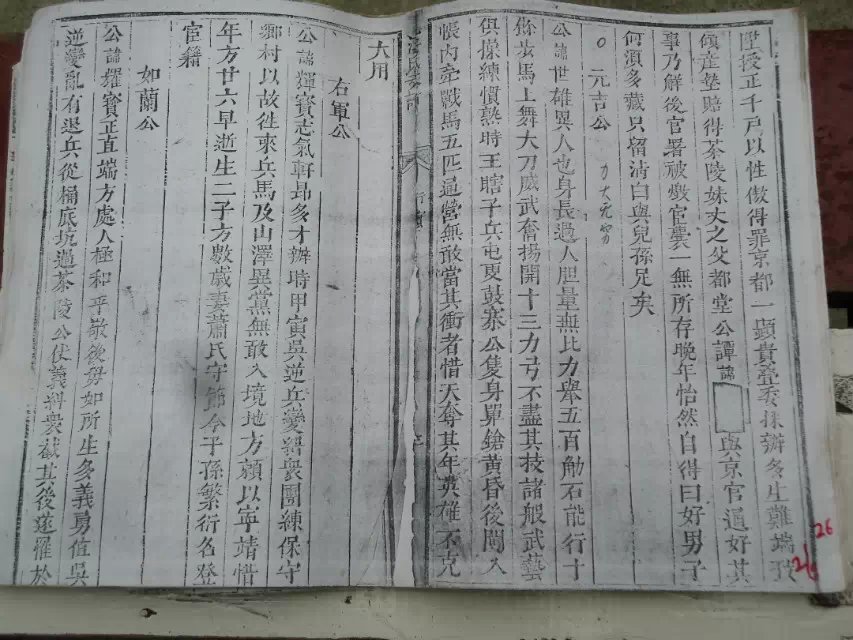 陞授正千戶以性傲得罪京都一顯貴疊委採辦多生難端致
傾產墊賠得茶陵妹丈之父都堂公譚諱 與京官通好其
事乃解後官署被燬官囊一無所存晚年怡然自得曰好男子
何須多藏只留清白與兒孫足矣
○ 元吉公 力大无穷
公諱世雄異人也身長過人胆量無比力舉五百觔石能行十
餘步馬上舞大刀威武奮揚開十三力弓不盡其技諸般武藝
俱操練慣熟時王瞎子兵屯更鼓寨公隻身單鎗黃昏後闖入
帳內牽戰馬五匹通營無敢當其衝者惜天奪其年英雄不克
大用
右軍公
公諱輝寶志氣軒昻多才辦時甲寅吳逆兵變糾衆團練保守
鄉村以故往來兵馬及山澤異黨無敢入境地方頼以寧靖惜
年方廿六早逝生二子方數歲妻蕭氏守節今子孫繁衍名登
官籍
如蘭公
公諱耀寶正直端方處人極和平敬後勞如所生多義勇值吳
逆變亂有退兵從桶底坑過茶陵公仗義糾衆截其後遂罹於
26
26